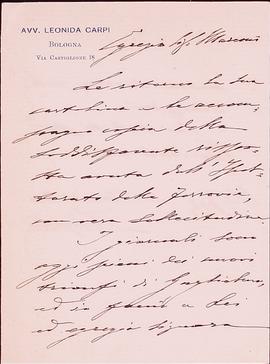 AVV. LEONIDA CARPI
BOLOGNA
VIA CASTIGLIONE 18
Egregio Sig. Marconi
Le ritorno la sua
cartolina e le accom-
pagno copia della
soddisfacente rispo-
sta avuta dall'Ispet-
torato della Ferrovia,
con vera sollecitudine.
I giornali sono
oggi pieni dei nuovi
trionfi di Guglielmo,
ed io faccio a Lei
ed egregia signora